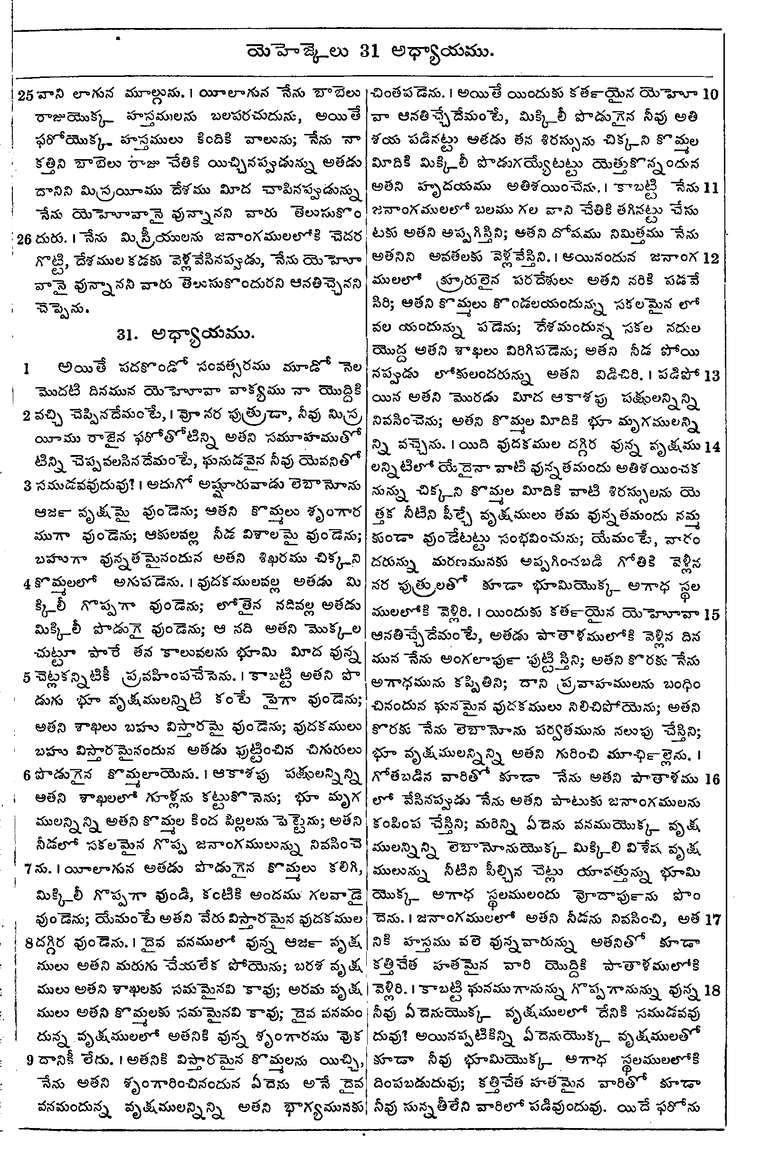 యెహెజ్కేలు 31 అధ్యాయము.
25 వాని లాగున మూల్గును. । యీలాగున నేను బాబెలు
రాజుయొక్క హస్తములను బలపరచుదును, అయితే
ఫరోయొక్క హస్తములు కిందికి వాలును; నేను నా
కత్తిని బాబెలు రాజు చేతికి యిచ్చినప్పడున్ను అతడు
దానిని మిస్రయీము దేశము మీద చాపినప్పడున్ను
నేను యెహోవానై వున్నానని వారు తెలుసుకొం
26 దురు. । నేను మిస్రీయులను జనాంగములలోకి చెదర
గొట్టి, దేశముల కడకు వెళ్లవేసినప్పడు, నేను యెహో
వానై వున్నానని వారు తెలుసుకొందురని ఆనతిచ్చెనని
చెప్పెను.
31. అధ్యాయము.
1 అయితే పదకొండో సంవత్సరము మూడో నెల
మొదటి దినమున యెహోవా వాక్యము నా యొద్దికి
2 వచ్చి చెప్పినదేమంటే, । వో నర పుత్రుడా, నీవు మిస్ర
యీము రాజైన ఫరోతోటిన్ని అతని సమూహముతో
టిన్ని చెప్పవలసినదేమంటే, ఘనుడవైన నీవు యెవనితో
3 సముడవవుదువు? । అదుగో అష్షూరువాడు లెబానోను
ఆర్జ వృక్షమై వుండెను; అతని కొమ్మలు శృంగార
ముగా వుండెను; ఆకులవల్ల నీడ విశాలమై వుండెను;
బహుగా వున్నతమైనందున అతని శిఖరము చిక్కని
4 కొమ్మలలో అగుపడెను. । వుదకములవల్ల అతడు మి
క్కిలీ గొప్పగా వుండెను; లోతైన నదివల్ల అతడు
మిక్కిలీ పొడుగై వుండెను; ఆ నది అతని మొక్కల
చుట్టూ పారే తన కాలువలను భూమి మీద వున్న
5 చెట్లకన్నిటికీ ప్రవహింపచేసెను. । కాబట్టి అతని పొ
డుగు భూ వృక్షములన్నిటి కంటే పైగా వుండెను;
అతని శాఖలు బహు విస్తారమై వుండెను; వుదకములు
బహు విస్తారమైనందున అతడు పుట్టించిన చిగురులు
6 పొడుగైన కొమ్మలాయెను. । ఆకాశపు పక్షులన్నిన్ని
అతని శాఖలలో గూళ్లను కట్టుకొనెను; భూ మృగ
ములన్నిన్ని అతని కొమ్మల కింద పిల్లలను పెట్టెను; అతని
నీడలో సకలమైన గొప్ప జనాంగములున్ను నివసించె
7 ను. । యీలాగున అతడు పొడుగైన కొమ్మలు కలిగి,
మిక్కిలీ గొప్పగా వుండి, కంటికి అందము గలవాడై
వుండెను; యేమంటే అతని వేరు విస్తారమైన వుదకముల
8 దగ్గిర వుండెను. । దైవ వనములో వున్న ఆర్జ వృక్ష
ములు అతని మరుగు చేయలేక పోయెను; బరశ వృక్ష
ములు అతని శాఖలకు సమమైనవి కావు; అరమ వృక్ష
ములు అతని కొమ్మలకు సమమైనవి కావు; దైవ వనమం
దున్న వృక్షములలో అతనికి వున్న శృంగారము వొక
9 దానికీ లేదు. । అతనికి విస్తారమైన కొమ్మలను యిచ్చి,
నేను అతని శృంగారించినందున ఏదెను అనే దైవ
వనమందున్న వృక్షములన్నిన్ని అతని భాగ్యమునకు
చింతపడెను. । అయితే యిందుకు కర్తయైన యెహో 10
వా ఆనతిచ్చేదేమంటే, మిక్కిలీ పొడుగైన నీవు అతి
శయ పడినట్టు అతడు తన శిరస్సును చిక్కని కొమ్మల
మీదికి మిక్కిలీ పొడుగయ్యేటట్టు యెత్తుకొన్నందున
అతని హృదయము అతిశయించెను. । కాబట్టి నేను 11
జనాంగములలో బలము గల వాని చేతికి తగినట్టు చేసు
టకు అతని అప్పగిస్తిని; అతని దోషము నిమిత్తము నేను
అతనిని అవతలకు వెళ్లవేస్తిని. । అయినందున జనాంగ 12
ములలో క్రూరులైన పరదేశులు అతని నరికి పడవే
సిరి; అతని కొమ్మలు కొండలయందున్ను సకలమైన లో
వల యందున్ను పడెను; దేశమందున్న సకల నదుల
యొద్ద అతని శాఖలు విరిగిపడెను; అతని నీడ పోయి
నప్పడు లోకులందరున్ను అతని విడిచిరి. । పడిపో 13
యిన అతని మొరడు మీద ఆకాశపు పక్షులన్నిన్ని
నివసించెను; అతని కొమ్మల మీదికి భూ మృగములన్ని
న్ని వచ్చెను. । యిది వుదకముల దగ్గిర వున్న వృక్షము 14
లన్నిటిలో యేదైనా వాటి వున్నతమందు అతిశయించక
నున్ను చిక్కని కొమ్మల మీదికి వాటి శిరస్సులను యె
త్తక నీటిని పీల్చే వృక్షములు తమ వున్నతమందు నమ్మ
కుండా వుండేటట్టు సంభవించును; యేమంటే, వారం
దరున్ను మరణమునకు అప్పగించబడి గోతికి వెళ్లిన
నర పుత్రులతో కూడా భూమియొక్క అగాధ స్థల
ములలోకి వెళ్లిరి. । యిందుకు కర్తయైన యెహోవా 15
ఆనతిచ్చేదేమంటే, అతడు పాతాళములోకి వెళ్లిన దిన
మున నేను అంగలార్పు పుట్టిస్తిని; అతని కొరకు నేను
అగాధమును కప్పితిని; దాని ప్రవాహములను బంధిం
చినందున ఘనమైన వుదకములు నిలిచిపోయెను; అతని
కొరకు నేను లెబానోను పర్వతమును నలుపు చేస్తిని;
భూ వృక్షములన్నిన్ని అతని గురించి మూర్ఛిల్లెను. ।
గోతబడిన వారితో కూడా నేను అతని పాతాళము 16
లో వేసినప్పడు నేను అతని పాటుకు జనాంగములను
కంపింప చేస్తిని; మరిన్ని ఏదెను వనముయొక్క వృక్ష
ములన్నిన్ని లెబానోనుయొక్క మిక్కిలి విశేష వృక్ష
ములున్ను నీటిని పీల్చిన చెట్లు యావత్తున్ను భూమి
యొక్క అగాధ స్థలములందు వోదార్పును పొం
దెను. । జనాంగములలో అతని నీడను నివసించి, అత 17
నికి హస్తము వలె వున్నవారున్ను అతనితో కూడా
కత్తిచేత హతమైన వారి యొద్దికి పాతాళములోకి
వెళ్లిరి. । కాబట్టి ఘనముగానున్ను గొప్పగానున్ను వున్న 18
నీవు ఏదెనుయొక్క వృక్షములలో దేనికి సముడవవు
దువు? అయినప్పటికిన్ని ఏదెనుయొక్క వృక్షములతో
కూడా నీవు భూమియొక్క అగాధ స్థలములలోకి
దింపబడుదువు; కత్తిచేత హతమైన వారితో కూడా
నీవు సున్నతీలేని వారిలో పడివుందువు. యిదే ఫరోను